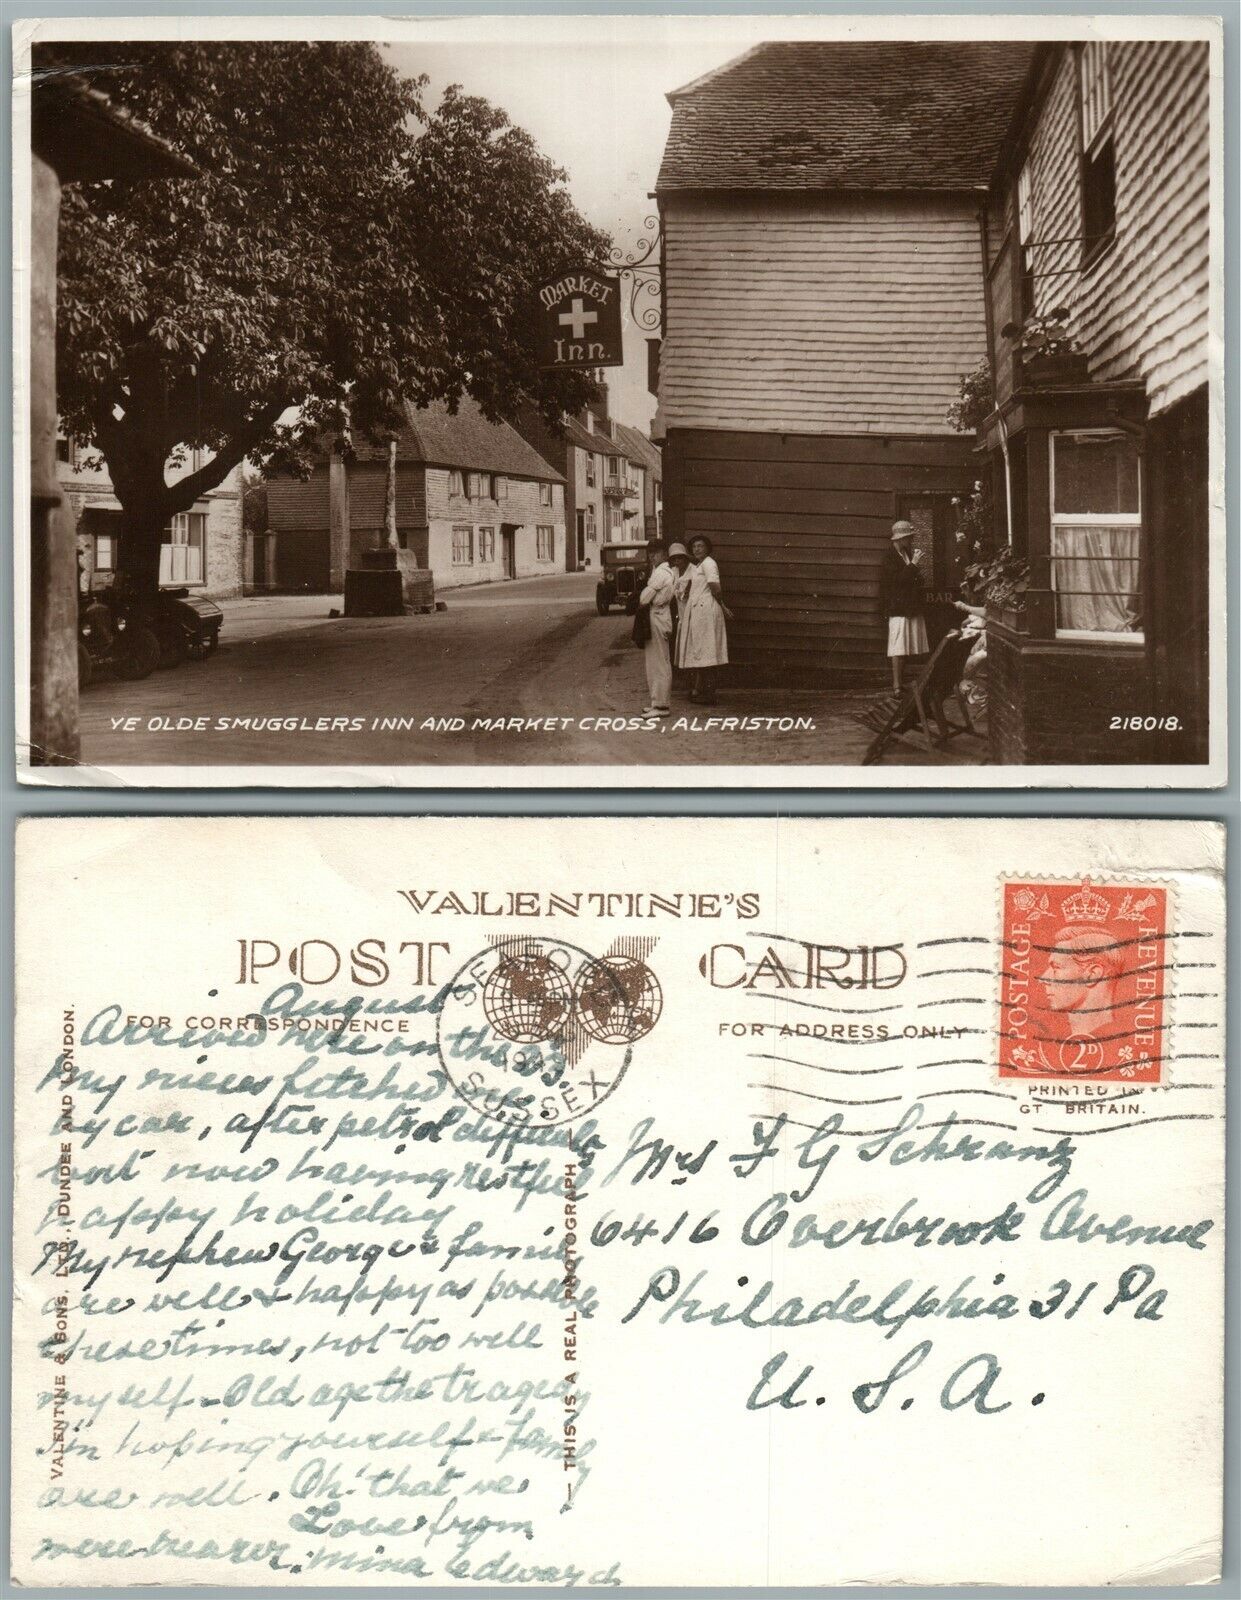 MARKET
Inn.
BAR
YE OLDE SMUGGLERS INN AND MARKET CROSS, ALFRISTON.
218018.
VALENTINE'S
POST CARD
FOR CORRESPONDENCE
FOR ADDRESS ONLY
SEAFORD
SUSSEX
POSTAGE
REVENUE
2D
PRINTED IN
GT. BRITAIN.
VALENTINE & SONS, LTD., DUNDEE AND LONDON.
— THIS IS A REAL PHOTOGRAPH —
August
Arrived here on the 23.
My nieces fetched me
by car, after petrol difficults
but now having restful
happy holiday
My nephew George & family
are well & happy as possible
these times, not too well
myself - Old age the tragedy
I'm hoping yourself & family
are well. Oh! that we
were nearer. Love from
Mina Edwards
Mrs F G Schranz
6416 Overbrook Avenue
Philadelphia 31 Pa
U. S. A.